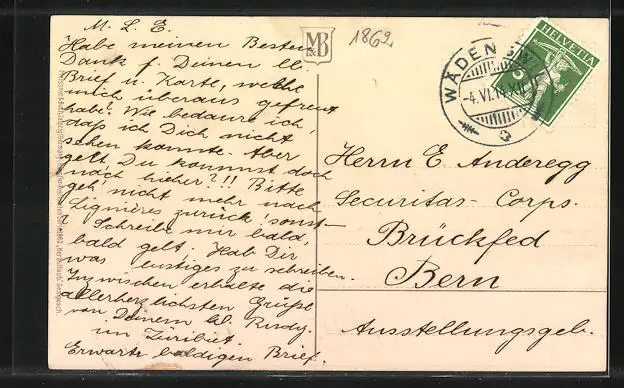 M. L. E.
Habe meinen Besten
Dank f. Deinen lb.
Brief u. Karte, welche
mich überaus gefreut
habe. Wie bedaure ich,
daß ich Dich nicht
sehen konnte. Aber
gelt Du kommst doch
nach hieher?!! Bitte
geh' nicht mehr nach
Lignières zurück, sonst-
? Schreibe mir bald,
bald gelt. Hab Dir
was lustiges zu schreiben.
Inzwischen erhalte die
allerherzlichsten Grüße
von Deinem lb.
im Züribiet.
Erwarte baldigen Brief.
MB
&C
1862
HELVETIA
5
WÄDENSWIL
-4.VI.14.XII
Herrn E. Anderegg
Securitas-Corps.
Brückfed
Bern
Ausstellungsgeb.